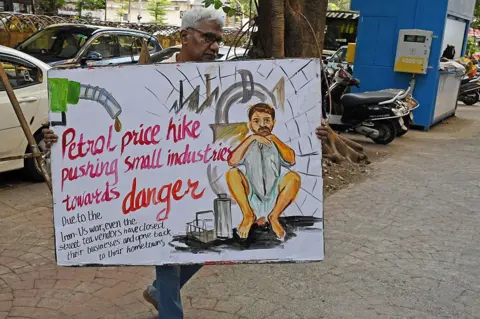 Petrol price hike
pushing small industries
towards danger
Due to the
Iran-US war, even the
street tea vendors have closed
their businesses and gone back
to their hometowns